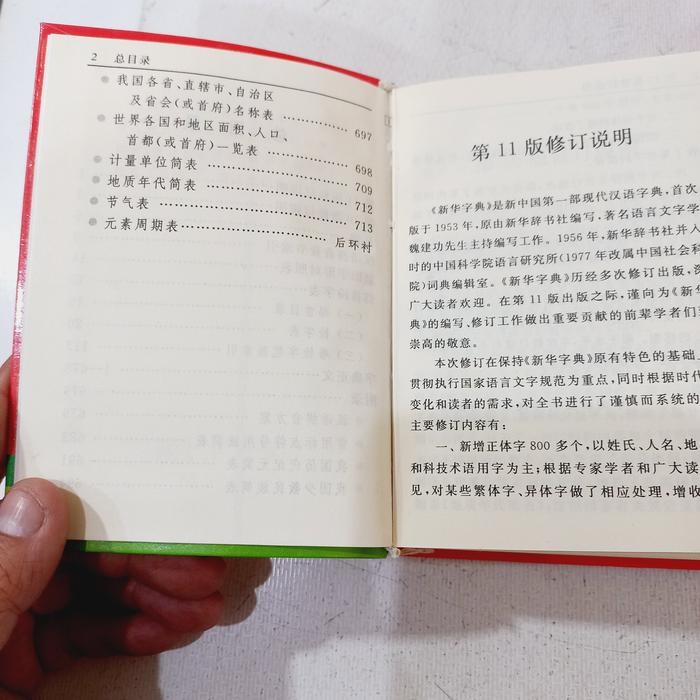 2 总目录
我国各省、直辖市、自治区
及省会(或首府)名称表 697
世界各国和地区面积、人口、
首都(或首府)一览表 698
计量单位简表 709
地质年代简表 712
节气表 713
元素周期表 后环衬
第 11 版修订说明
《新华字典》是新中国第一部现代汉语字典,首次
版于 1953 年,原由新华辞书社编写,著名语言文字学
魏建功先生主持编写工作。1956 年,新华辞书社并入
时的中国科学院语言研究所(1977 年改属中国社会科
院)词典编辑室。《新华字典》历经多次修订出版,深
广大读者欢迎。在第 11 版出版之际,谨向为《新华
典》的编写、修订工作做出重要贡献的前辈学者们
崇高的敬意。
本次修订在保持《新华字典》原有特色的基础
贯彻执行国家语言文字规范为重点,同时根据时代
变化和读者的需求,对全书进行了谨慎而系统的
主要修订内容有:
一、新增正体字 800 多个,以姓氏、人名、地
和科技术语用字为主;根据专家学者和广大读
见,对某些繁体字、异体字做了相应处理,增收